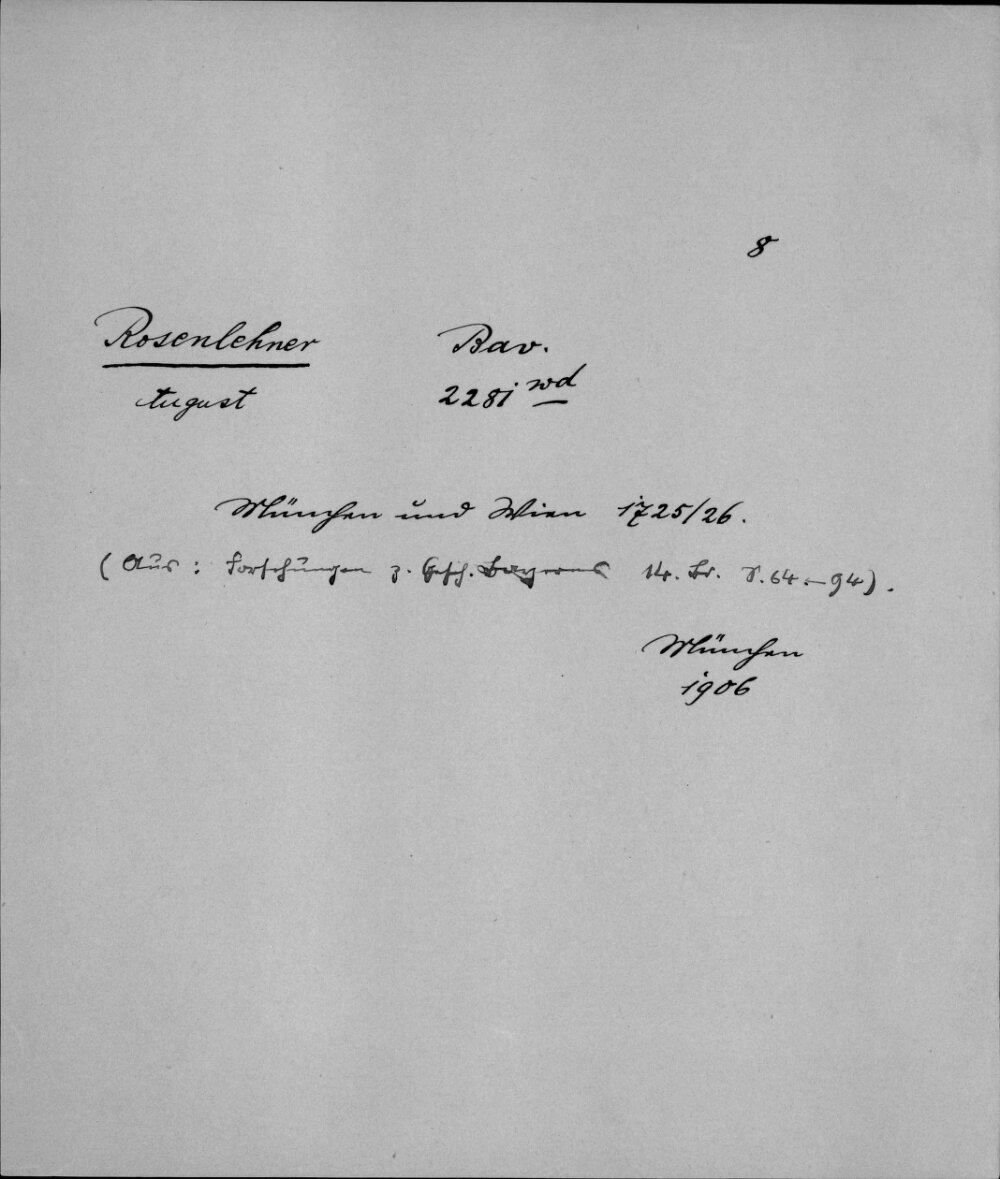 8
Rosenlehner Bav.
August 2281 wd
München und Wien 1725/26.
(Aus: Forschungen z. Gesch. Bayerns 14. Bd. S. 64–94).
München
1906